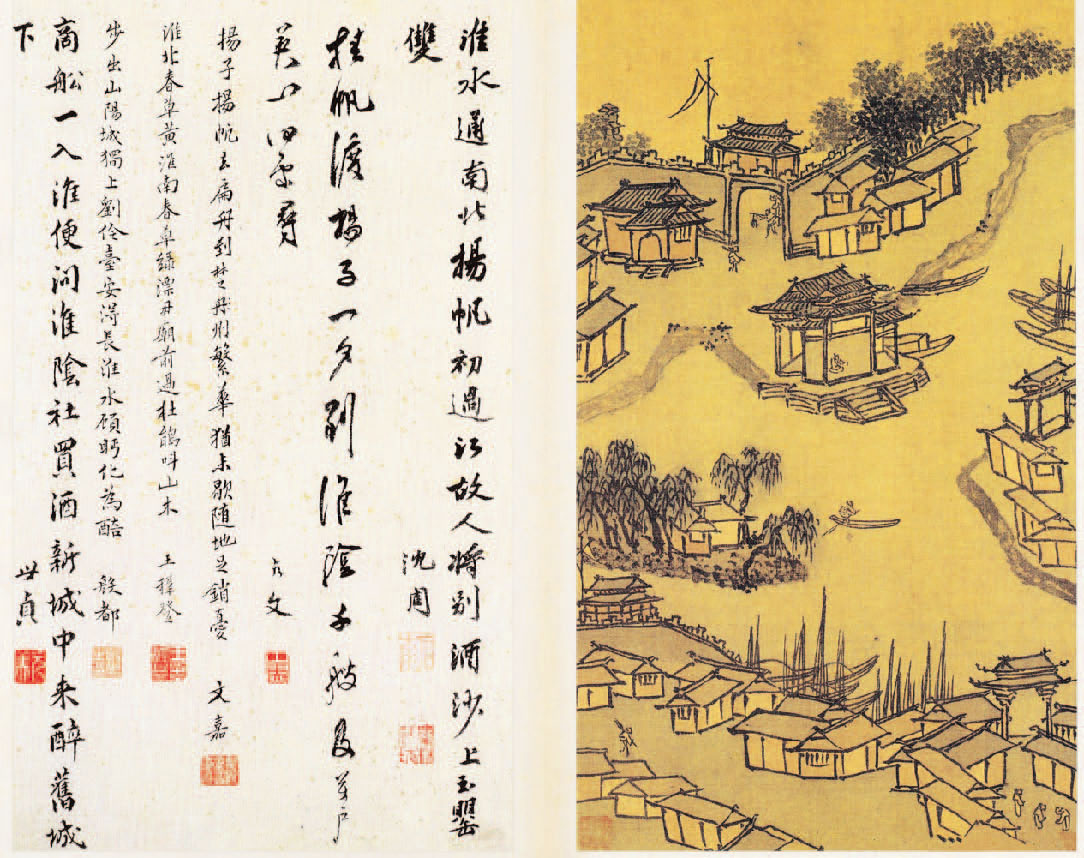 淮水通南北揚帆初過江故人將別酒沙上玉罌
雙 沈周
挂帆渡揚子一夕到淮陰千艘及萬戶
允文
揚子揚帆去扁舟到楚州繁華猶未歇随地足銷憂 文嘉
淮北春草黃淮南春草綠漂母廟前過杜鵑叫山木 王穉登
步出山陽城獨上劉伶臺安得長淮水顧眄化為醅 殷都
商船一入淮便問淮陰社買酒新城中来醉舊城
下 世貞